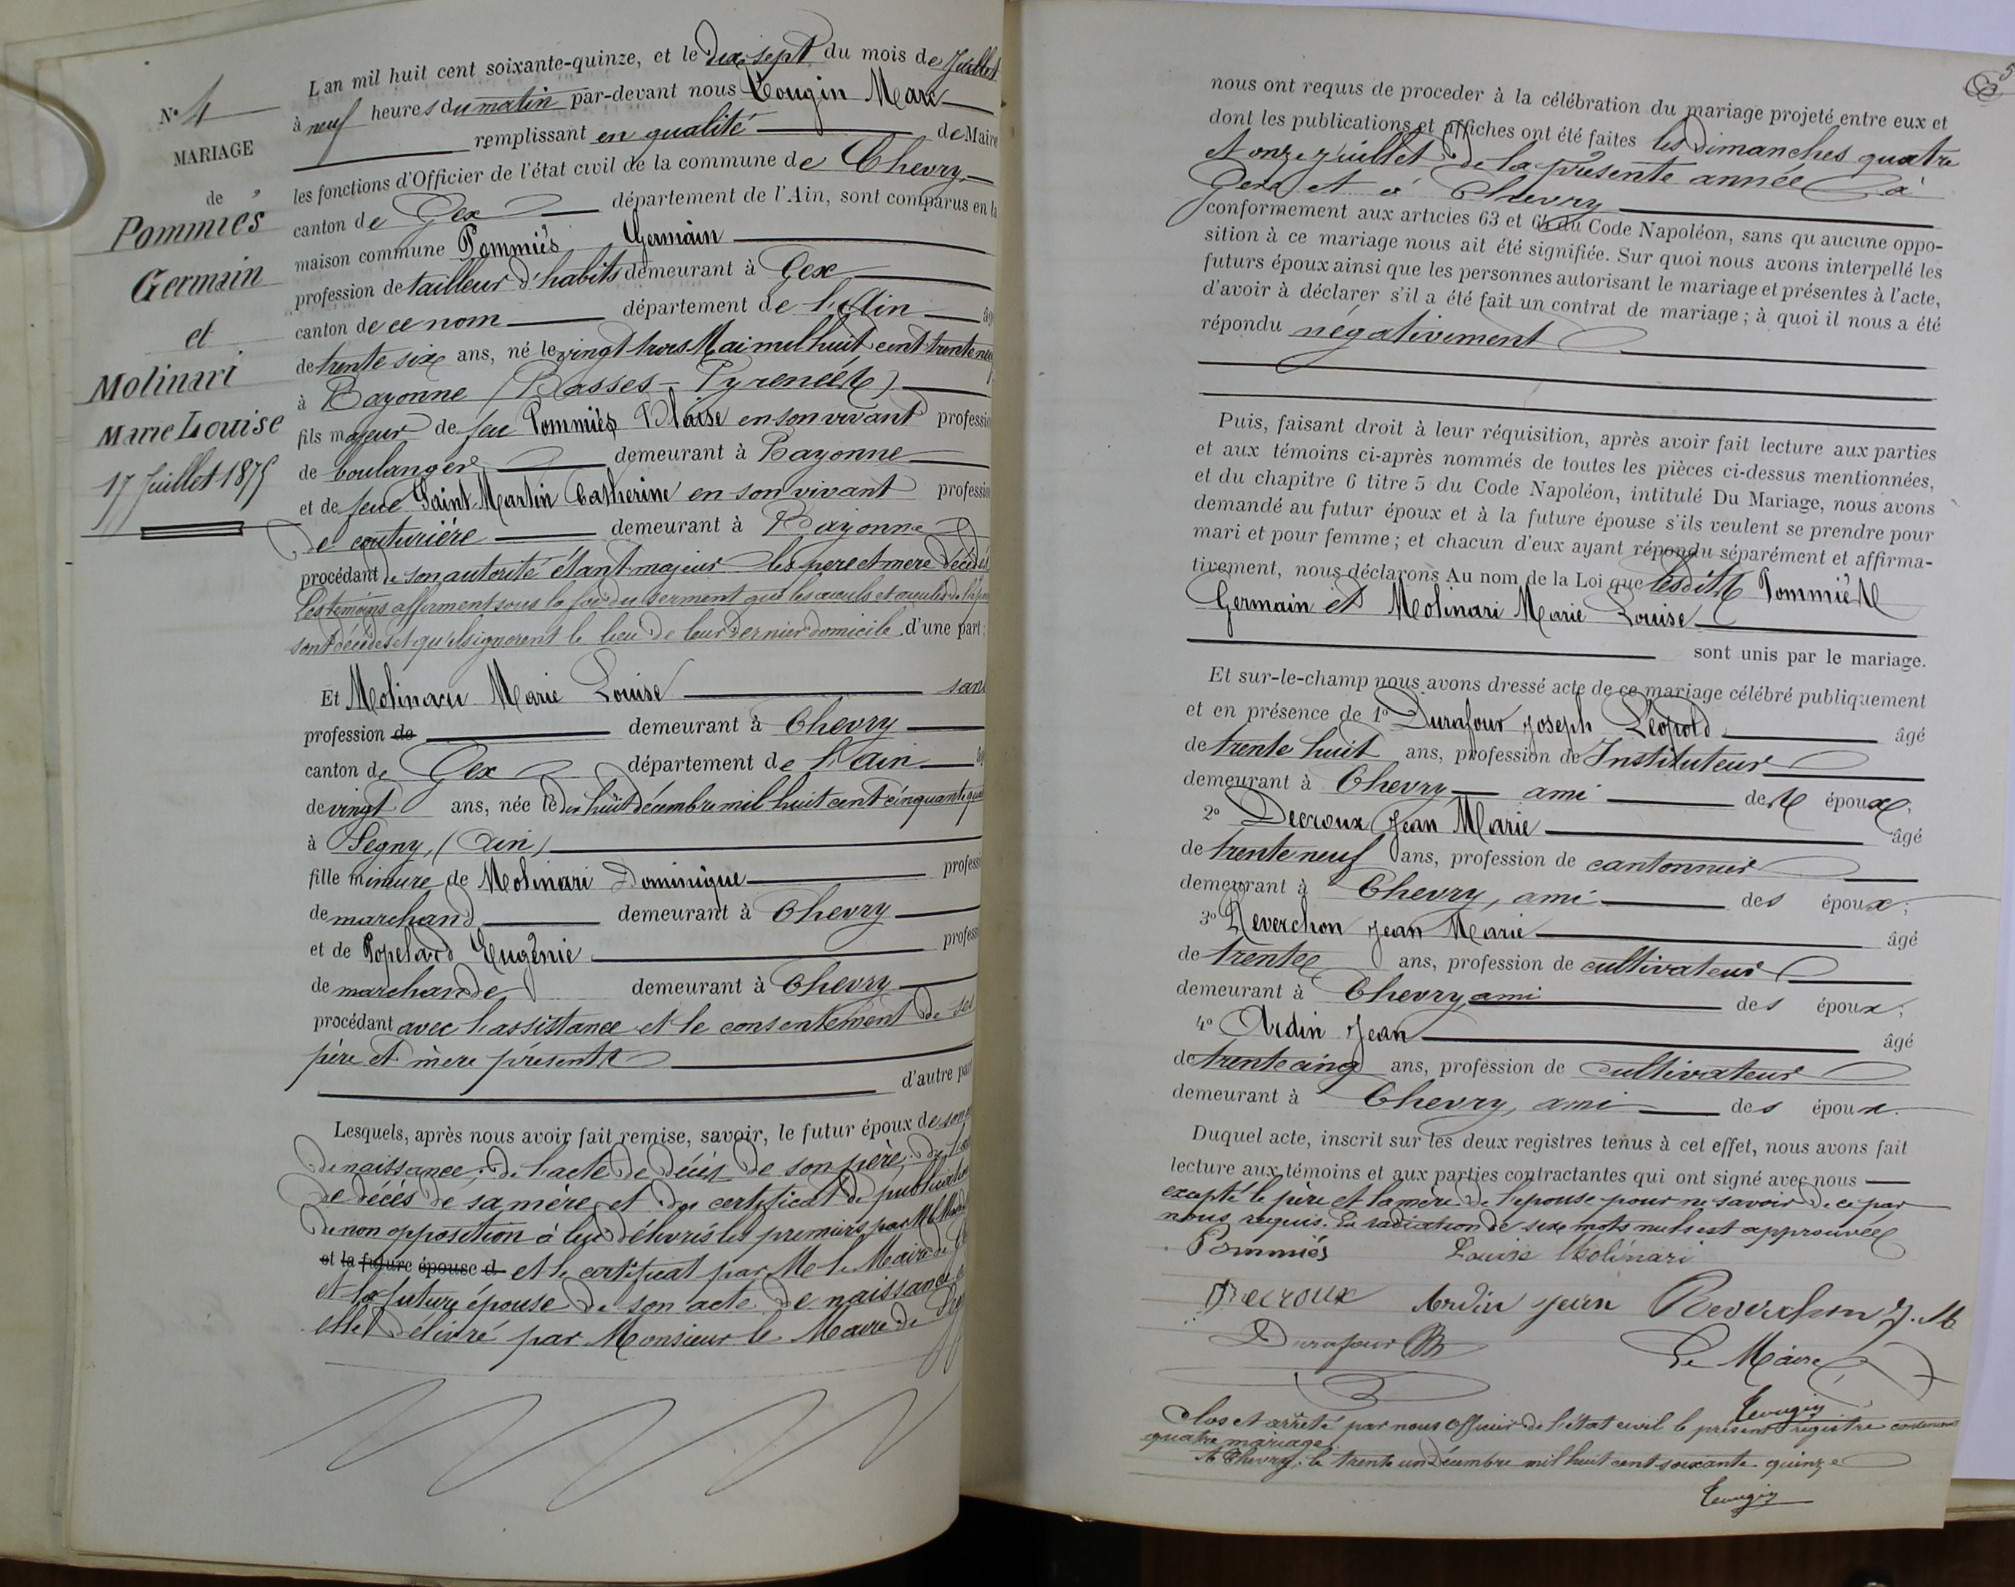 N° 4
MARIAGE
de
Pommiés
Germain
et
Molinari
Marie Louise
17 Juillet 1875
L'an mil huit cent soixante-quinze, et le dix sept du mois de Juillet
à neuf heures du matin par-devant nous Tougin Marc
remplissant en qualité de Maire
les fonctions d'Officier de l'état civil de la commune de Chevry
canton de Gex département de l'Ain, sont comparus en la
maison commune Pommiés Germain
profession de tailleur d'habits demeurant à Gex
canton de ce nom département de l'Ain âgé
de trente six ans, né le vingt trois Mai mil huit cent trente neuf
à Bayonne (Basses-Pyrenées)
fils majeur de feu Pommiés Blaise en son vivant profession
de boulanger demeurant à Bayonne
et de feue Saint Martin Catherine en son vivant profession
de couturière demeurant à Bayonne
procédant de son autorité étant majeur les pere et mere décédés
Les temoins affirment sous la foi du serment que les aieuls et aieules de l'époux
sont décédés et qu'ils ignorent le lieu de leur dernier domicile d'une part;
Et Molinari Marie Louise sans
profession de demeurant à Chevry
canton de Gex département de l'Ain âgée
de vingt ans, née le dix huit décembre mil huit cent cinquante quatre
à Segny, (Ain)
fille mineure de Molinari Dominique profession
de marchand demeurant à Chevry
et de Popelard Eugènie profession
de marchande demeurant à Chevry
procédant avec l'assistance et le consentement de ses
père et mère présents
d'autre part
Lesquels, après nous avoir fait remise, savoir, le futur époux de son
de naissance, de l'acte de décès de son père, de
de décès de sa mère et du certificat de publication
de non opposition à lui délivrés les premiers par M le
et la future épouse d et le certificat par M le Maire de
et la future épouse de son acte de naissance
elle délivré par Monsieur le Maire de Segny
5
nous ont requis de proceder à la célébration du mariage projeté entre eux et
dont les publications et affiches ont été faites les dimanches quatre
et onze juillet de la présente année à
Gex et à Chevry
conformement aux articles 63 et 64 du Code Napoléon, sans qu'aucune oppo-
sition à ce mariage nous ait été signifiée. Sur quoi nous avons interpellé les
futurs époux ainsi que les personnes autorisant le mariage et présentes à l'acte,
d'avoir à déclarer s'il a été fait un contrat de mariage; à quoi il nous a été
répondu négativement
Puis, faisant droit à leur réquisition, après avoir fait lecture aux parties
et aux témoins ci-après nommés de toutes les pièces ci-dessus mentionnées,
et du chapitre 6 titre 5 du Code Napoléon, intitulé Du Mariage, nous avons
demandé au futur époux et à la future épouse s'ils veulent se prendre pour
mari et pour femme; et chacun d'eux ayant répondu séparément et affirma-
tivement, nous déclarons Au nom de la Loi que lesdits Pommiés
Germain et Molinari Marie Louise
sont unis par le mariage.
Et sur-le-champ nous avons dressé acte de ce mariage célébré publiquement
et en présence de 1° Durafour Joseph Léopold âgé
de trente huit ans, profession de Instituteur
demeurant à Chevry ami des époux;
2° Decroux Jean Marie âgé
de trente neuf ans, profession de cantonnier
demeurant à Chevry, ami des époux;
3° Reverchon Jean Marie âgé
de trente ans, profession de cultivateur
demeurant à Chevry ami des époux;
4° Ardin Jean âgé
de trente cinq ans, profession de cultivateur
demeurant à Chevry, ami des époux.
Duquel acte, inscrit sur les deux registres tenus à cet effet, nous avons fait
lecture aux témoins et aux parties contractantes qui ont signé avec nous
excepté le père et la mère de l'épouse pour ne savoir de ce par
nous requis. La radiation de six mots nuls est approuvée
Pommiés Louise Molinari
Decroux Ardin Jean Reverchon J. M
Durafour Le Maire
Tougin
Clos et arrêté par nous Officier de l'état civil le présent registre contenant
quatre mariages
A Chevry, le trente un Décembre mil huit cent soixante quinze
Tougin